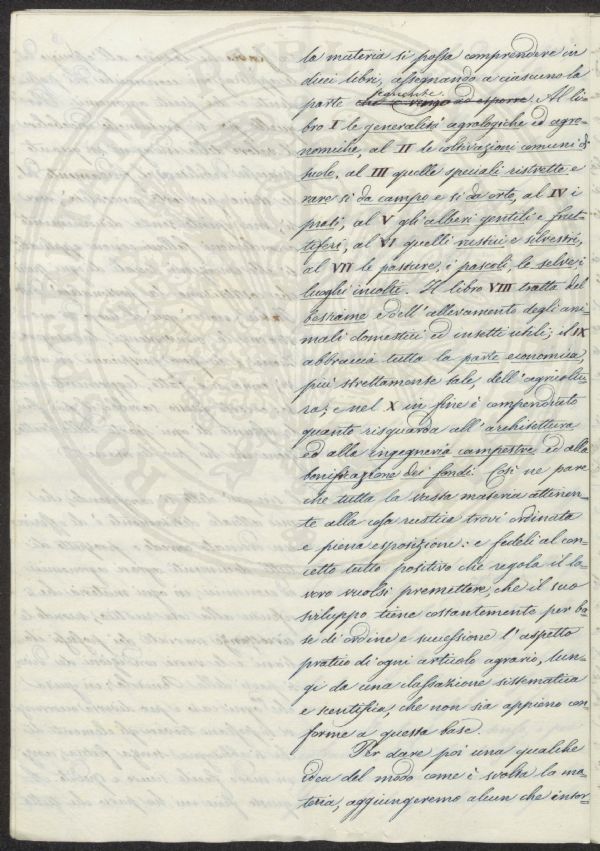 la materia si possa comprendere in
dieci libri, assegnando a ciascuno la
seguente.
parte che è venga ad esporre. Al li-
bro I le generalità agrologiche ed agro-
nomiche, al II le coltivazioni comuni di
suolo, al III quelle speciali ristrette e
rare sì da campo e sì da orto, al IV i
prati, al V gli alberi gentili e frut-
tiferi, al VI quelli rustici e silvestri,
al VII le pasture, i pascoli, le selve i
luoghi incolti. Il libro VIII tratta del
bestiame e dell'allevamento degli ani-
mali domestici ed insetti utili; il IX
abbraccia tutta la parte economica,
più strettamente tale, dell'agricoltu-
ra; e nel X in fine è compendiato
quanto risguarda all'architettura
ed alla ingegneria campestre ed alla
bonificazione dei fondi. Così ne pare
che tutta la vasta materia attinen-
te alla cosa rustica trovi ordinata
e piena esposizione: e fedeli al con-
cetto tutto positivo che regola il la-
voro vuolsi premettere, che il suo
sviluppo tiene costantemente per ba
se di ordine e successione l'aspetto
pratico di ogni articolo agrario, lun-
gi da una classazione sistematica
e scentifica, che non sia appieno con
forme a questa base.
Per dare poi una qualche
idea del modo come è svolta la ma-
teria, aggiungeremo alcun che intor-